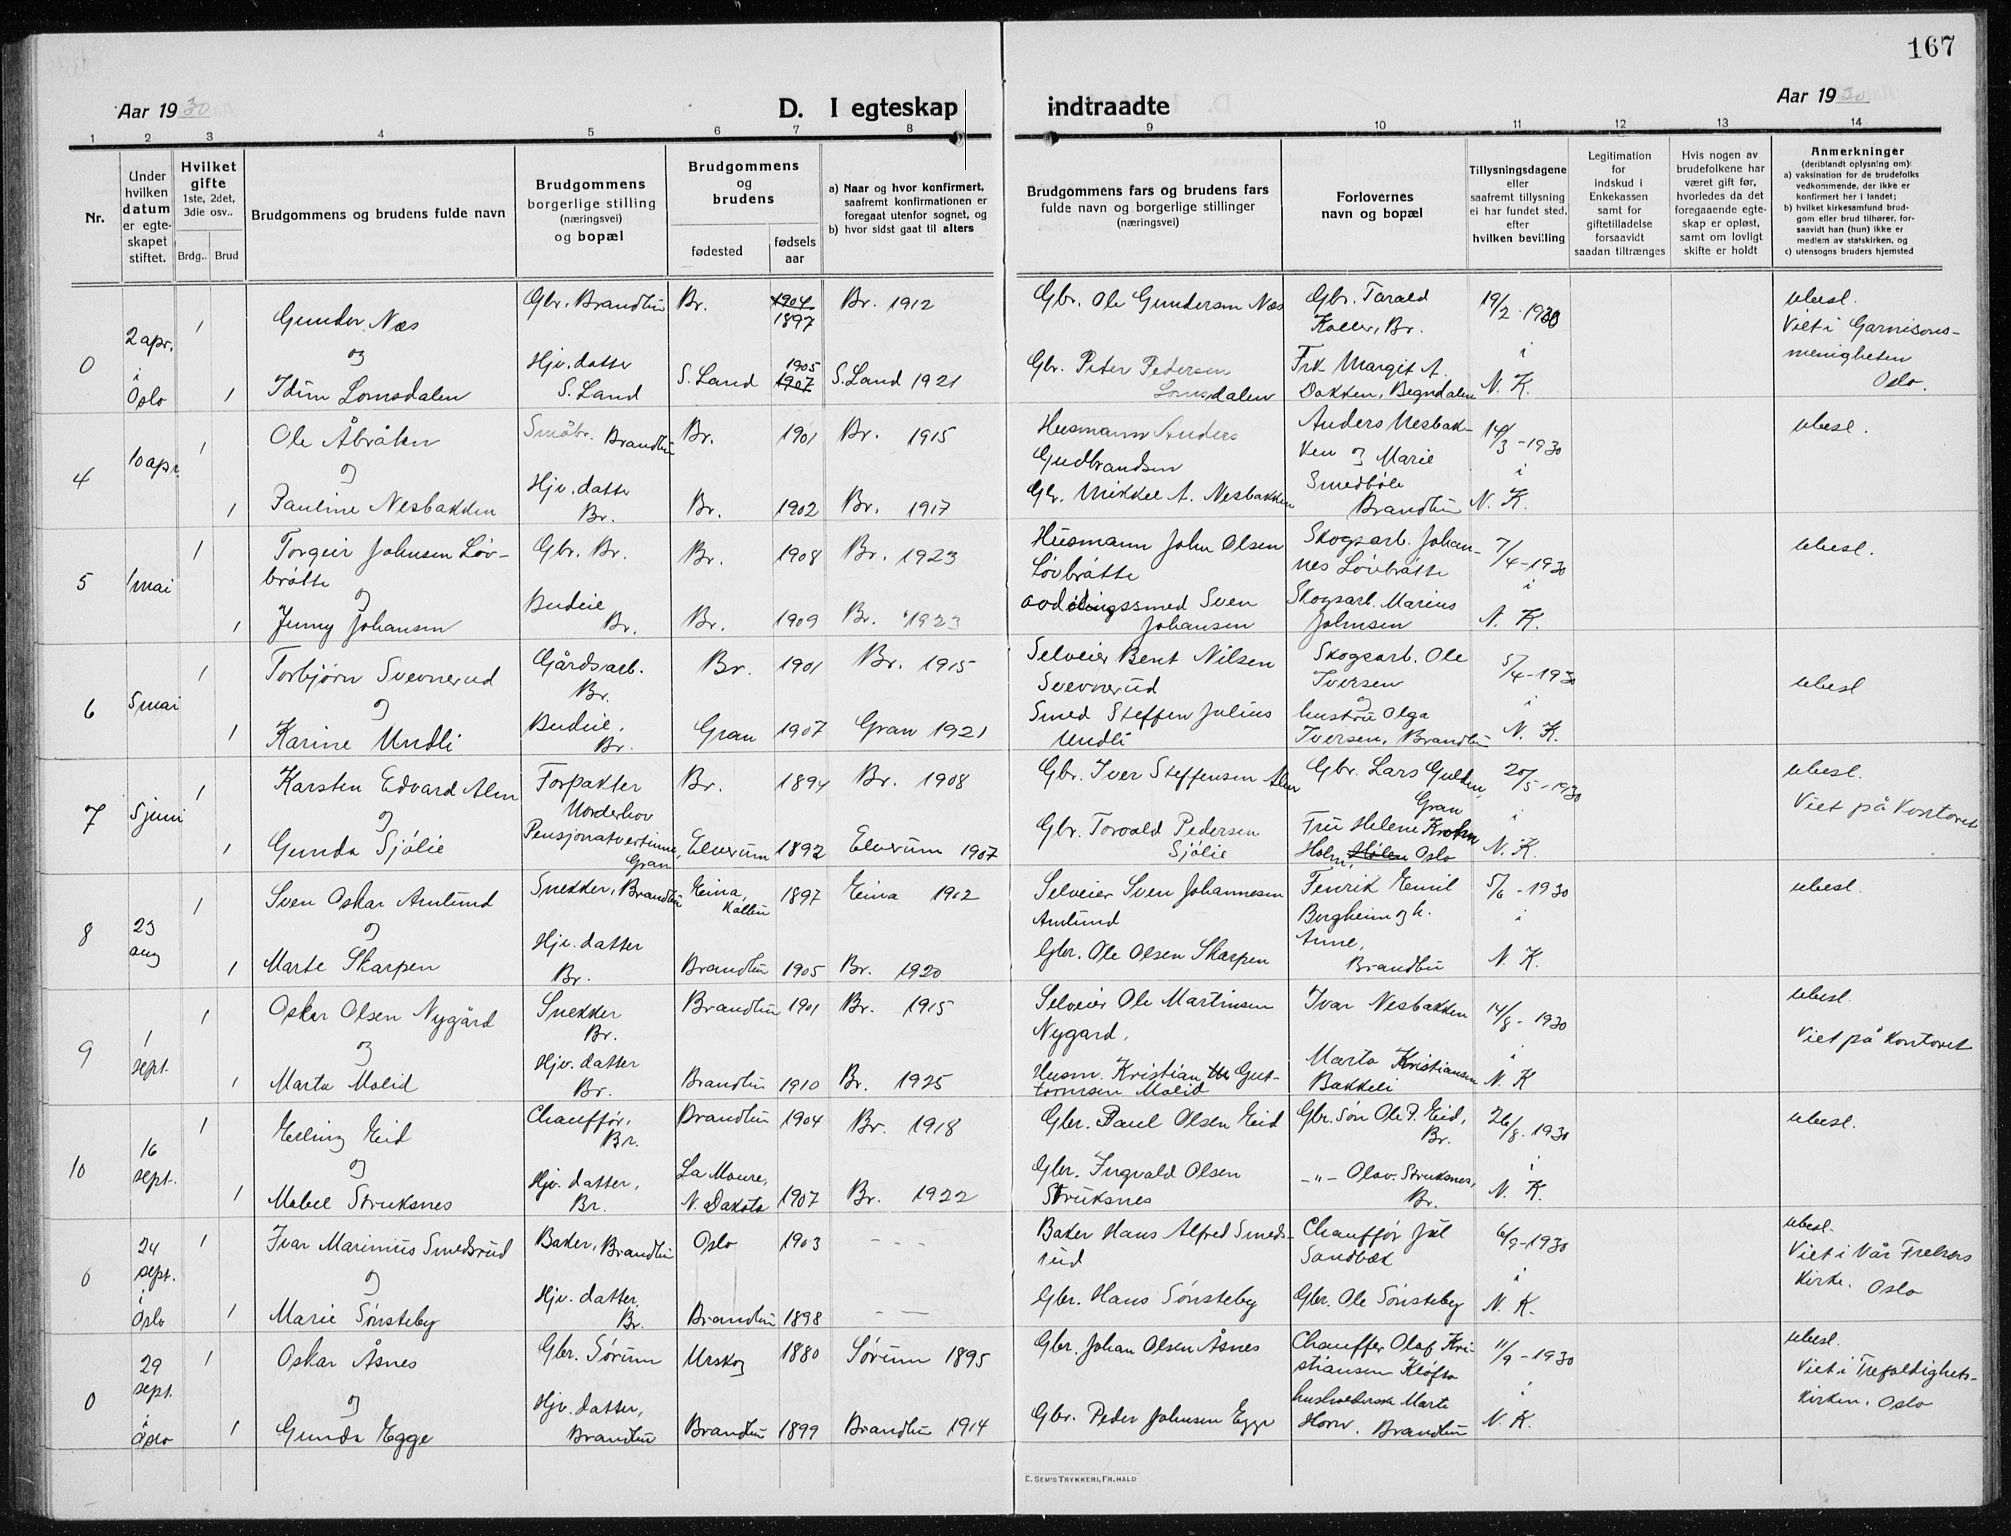 167
Aar 1930
D. I egteskap indtraadte
Aar 1930
1 2 3 4 5 6 7 8 9 10 11 12 13 14
Nr.
Under
hvilken
datum
er egte-
skapet
stiftet.
Hvilket
gifte
1ste, 2det,
3die osv..
Brdg.. Brud
Brudgommens og brudens fulde navn
Brudgommens
borgerlige stilling
(næringsvei)
og bopæl
Brudgommens
og
brudens
fødested
fødsels
aar
a) Naar og hvor konfirmert,
saafremt konfirmationen er
foregaat utenfor sognet, og
b) hvor sidst gaat til alters
Brudgommens fars og brudens fars
fulde navn og borgerlige stillinger
(næringsvei)
Forlovernes
navn og bopæl
Tillysningsdagene
eller
saafremt tillysning
ei har fundet sted,
efter
hvilken bevilling
Legitimation
for
indskud i
Enkekassen
samt for
giftetilladelse
forsaavidt
saadan tiltrænges
Hvis nogen av
brudefolkene har
været gift før,
hvorledes da det
foregaaende egte-
skap er opløst,
samt om lovligt
skifte er holdt
Anmerkninger
(deriblandt oplysning om):
a) vaksination for de brudefolks
vedkommende, der ikke er
konfirmert her i landet;
b) hvilket kirkesamfund brud-
gom eller brud tilhører, for-
saavidt han (hun) ikke er
medlem av statskirken, og
c) utensogns bruders hjemsted
0
2 apr.
i
Oslo
1
Gunder Næs
og
1
Idun Lomsdalen
Gbr. Brandbu
Hjv. datter
S. Land
Br. 1904
1897
Br. 1912
S. Land 1905
1907
S. Land 1921
Gbr. Ole Gundersen Næs
Gbr. Peter Pedersen
Lomsdalen
Gbr. Tarald
Koller, Br.
Frk Margit A.
Dokken, Begndalen
19/2 - 1930
i
N. K.
ubesl.
Viet i Garnisons-
menigheten
Oslo.
4
10 apr.
1
Ole Åbråten
og
1
Pauline Nesbakken
Småbr. Brandbu
Hjv. datter
Br.
Br. 1901 Br. 1915
Br. 1902 Br. 1917
Husmann Anders
Gudbrandsen
Gbr. Mikkel A. Nesbakken
Anders Nesbak-
ken og Marie
Smedbøle
Brandbu
14/3 - 1930
i
N. K.
ubesl.
5
1 mai
1
Torgeir Johnsen Løv-
bråtte
og
1
Jenny Johansen
Gbr. Br.
Budeie
Br.
Br. 1908 Br. 1923
Br. 1909 Br. 1923
Husmann John Olsen
Løvbråtte
avdelingssmed Sven
Johansen
Skogsarb. Johan-
nes Løvbråtte
Skogsarb. Marius
Johnsen
7/4 - 1930
i
N. K.
ubesl.
6
5 mai
1
Torbjørn Svevnerud
og
1
Karine Undli
Gårdsarb.
Br.
Budeie,
Br.
Br. 1901 Br. 1915
Gran 1907 Gran 1921
Selveier Bent Nilsen
Svevnerud
Smed Steffen Julius
Undli
Skogsarb. Ole
Iversen
og
hustru Olga
Iversen, Brandbu
5/4 - 1930
i
N. K.
ubesl
7
5 juni
1
Karsten Edvard Alm
og
1
Gunda Sjølie
Forpakter
Norderhov
Pensjonatvertinne,
Gran
Br. 1894 Br. 1908
Elverum 1892 Elverum 1907
Gbr. Iver Steffensen Alm
Gbr. Torvald Pedersen
Sjølie
Gbr. Lars Gulden,
Gran
Fru Helene Krohn
Holm, Oslo
20/5 - 1930
i
N. K.
ubesl.
Viet på kontoret
8
23
aug
1
Sven Oskar Amlund
og
1
Marte Skarpen
Snekker, Brandbu
Hjv. datter
Br.
Eina,
Kolbu
1897 Eina 1912
Brandbu 1905 Br. 1920
Selveier Sven Johannesen
Amlund
Gbr. Ole Olsen Skarpen
Fenrik Emil
Bergheim og h.
Anne,
Brandbu
5/6 - 1930
i
N. K.
ubesl.
9
1
sept.
1
Oskar Olsen Nygård
og
1
Marta Molid
Snekker
Br.
Hjv. datter
Br.
Brandbu 1901 Br. 1915
Brandbu 1910 Br. 1925
Selveier Ole Martinsen
Nygard,
Husm. Kristian Gut-
tormsen Molid
Ivar Nesbakken
Marta Kristiansen
Bakkeli
14/8 - 1930
i
N. K
ubesl.
Viet på kontoret
10
16
sept.
1
Erling Eid
og
1
Mabel Struksnes
Chauffør,
Br.
Hjv. datter,
Br.
Brandbu 1904 Br. 1918
La Moure,
N. Dakota 1907 Br. 1922
Gbr. Paul Olsen Eid
Gbr. Ingvald Olsen
Struksnes
Gbr. søn Ole P. Eid,
Br.
-"- Olav Struksnes,
Br.
26/8. 1930
i
N. K.
ubesl.
0
24
sept.
i
Oslo
1
Ivar Marinius Smedsrud
og
1
Marie Sønsteby
Baker, Brandbu
Hjv. datter
Br.
Oslo 1903 - - -
Brandbu 1898 - -
Baker Hans Alfred Smeds-
rud
Gbr. Hans Sønsteby
Chauffør Jul
Sandbæk
Gbr. Ole Sønsteby
6/9 - 1930
i
N. K.
ubesl.
Viet i Vår Frelsers
kirke. Oslo
0
29
sept.
i
Oslo
1
Oskar Åsnes
og
1
Gunda Egge
Gbr. Sørum
Hjv. datter,
Brandbu
Urskog 1880 Sørum 1895
Brandbu 1899 Brandbu 1914
Gbr. Johan Olsen Åsnes
Gbr. Peder Johnsen Egge
Chauffer Olaf Kri-
stiansen Kløfta
husholderske Marte
Horn. Brandbu
11/9 - 1930
i
N. K.
ubesl.
Viet i Trefoldighets-
kirken, Oslo
E. SEM'S TRYKKERI, FR.HALD